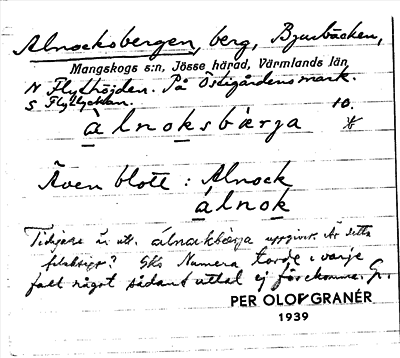 Alnocksbergen, berg, Bjurbäcken,
Mangskogs s:n, Jösse härad, Värmlands län
N Flythöjden. På Östigårdens mark.
S Flytlyckan. 10.
àlnoksbærga
Även blott: Alnock
álnok
Tidigare är utt. álnakbærja uppgivet. Är detta
felaktigt? Numera torde i varje
fall något sådant uttal ej förekomma. Gr.
PER OLOF GRANÉR
1939